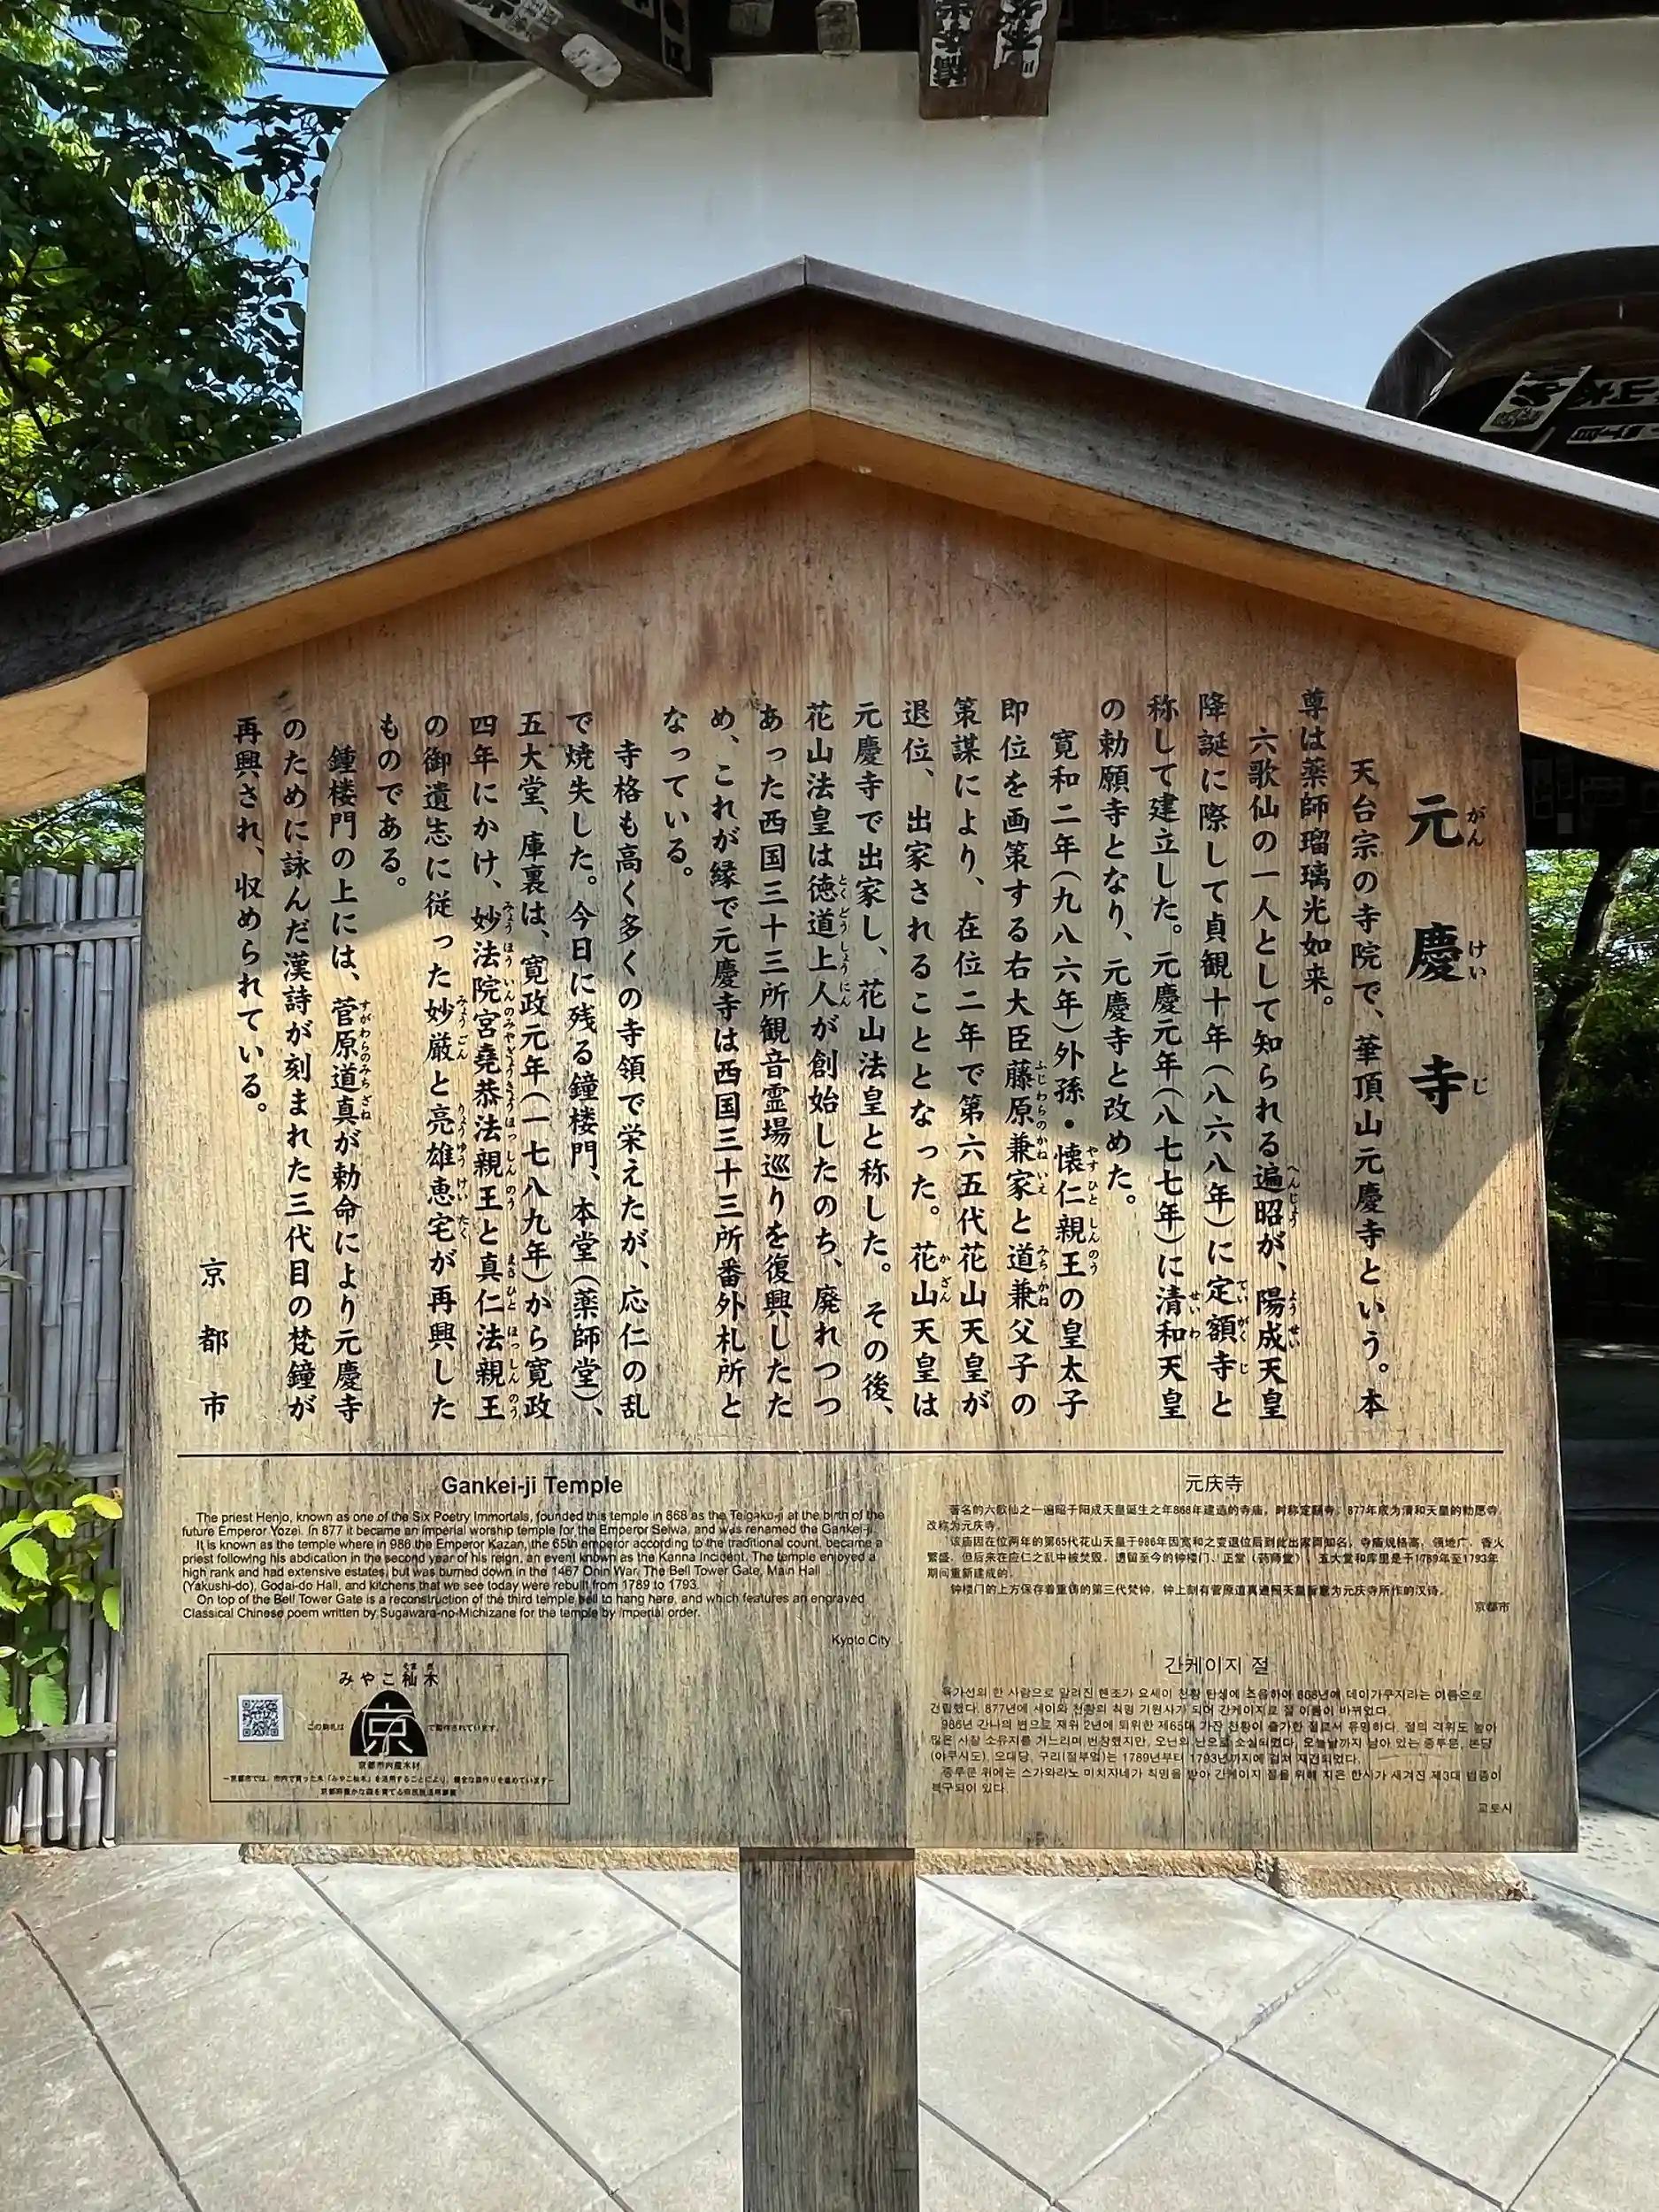 元慶寺
がんけいじ
天台宗の寺院で、華頂山元慶寺という。本
尊は薬師瑠璃光如来。
六歌仙の一人として知られる遍昭が、陽成天皇
降誕に際して貞観十年(八六八年)に定額寺と
称して建立した。元慶元年(八七七年)に清和天皇
の勅願寺となり、元慶寺と改めた。
寛和二年(九八六年)外孫・懐仁親王の皇太子
即位を画策する右大臣藤原兼家と道兼父子の
策謀により、在位二年で第六五代花山天皇が
退位、出家されることとなった。花山天皇は
元慶寺で出家し、花山法皇と称した。その後、
花山法皇は徳道上人が創始したのち、廃れつつ
あった西国三十三所観音霊場巡りを復興したた
め、これが縁で元慶寺は西国三十三所番外札所と
なっている。
寺格も高く多くの寺領で栄えたが、応仁の乱
で焼失した。今日に残る鐘楼門、本堂(薬師堂)、
五大堂、庫裏は、寛政元年(一七八九年)から寛政
四年にかけ、妙法院宮堯恭法親王と真仁法親王
の御遺志に従った妙厳と亮雄恵宅が再興した
ものである。
鐘楼門の上には、菅原道真が勅命により元慶寺
のために詠んだ漢詩が刻まれた三代目の梵鐘が
再興され、収められている。
京都市
Gankei-ji Temple
The priest Henjo, known as one of the Six Poetry Immortals, founded this temple in 868 as the Teigaku-ji at the birth of the
future Emperor Yozei. In 877 it became an imperial worship temple for the Emperor Seiwa, and was renamed the Gankei-ji.
It is known as the temple where in 986 the Emperor Kazan, the 65th emperor according to the traditional count, became a
priest following his abdication in the second year of his reign, an event known as the Kanna Incident. The temple enjoyed a
high rank and had extensive estates, but was burned down in the 1467 Onin War. The Bell Tower Gate, Main Hall
(Yakushi-do), Godai-do Hall, and kitchens that we see today were rebuilt from 1789 to 1793.
On top of the Bell Tower Gate is a reconstruction of the third temple bell to hang here, and which features an engraved
Classical Chinese poem written by Sugawara-no-Michizane for the temple by imperial order.
Kyoto City
元庆寺
著名的六歌仙之一遍昭于阳成天皇诞生之年868年建造的寺庙，时称定额寺。877年成为清和天皇的勅愿寺，
改称为元庆寺。
该庙因在位两年的第65代花山天皇于986年因宽和之变退位后到此出家而知名，寺庙规格高，领地广、香火
繁盛，但后来在应仁之乱中被焚毁。遗留至今的钟楼门、正堂（药师堂）、五大堂和库里是于1789年至1793年
期间重新建成的。
钟楼门的上方保存着重铸的第三代梵钟，钟上刻有菅原道真遵照天皇旨意为元庆寺所作的汉诗。
京都市
간케이지 절
육가선의 한 사람으로 알려진 헨조가 요세이 천황 탄생에 즈음하여 868년에 데이가쿠지라는 이름으로
건립했다. 877년에 세이와 천황의 칙명 기원사가 되어 간케이지로 절 이름이 바뀌었다.
986년 간나의 변으로 재위 2년에 퇴위한 제65대 가잔 천황이 출가한 절로서 유명하다. 절의 격위도 높아
많은 사찰 소유지를 거느리며 번창했지만, 오닌의 난으로 소실되었다. 오늘날까지 남아 있는 종루문, 본당
(야쿠시도), 오대당, 구리(절부엌)는 1789년부터 1793년까지에 걸쳐 재건되었다.
종루문 위에는 스가와라노 미치자네가 칙명을 받아 간케이지 절을 위해 지은 한시가 새겨진 제3대 범종이
복구되어 있다.
교토시
みやこ杣木
この駒札は
京
で製作されています。
京都市内産木材
－京都市では、市内で育った木「みやこ杣木」を活用することにより、健全な森作りを進めています－